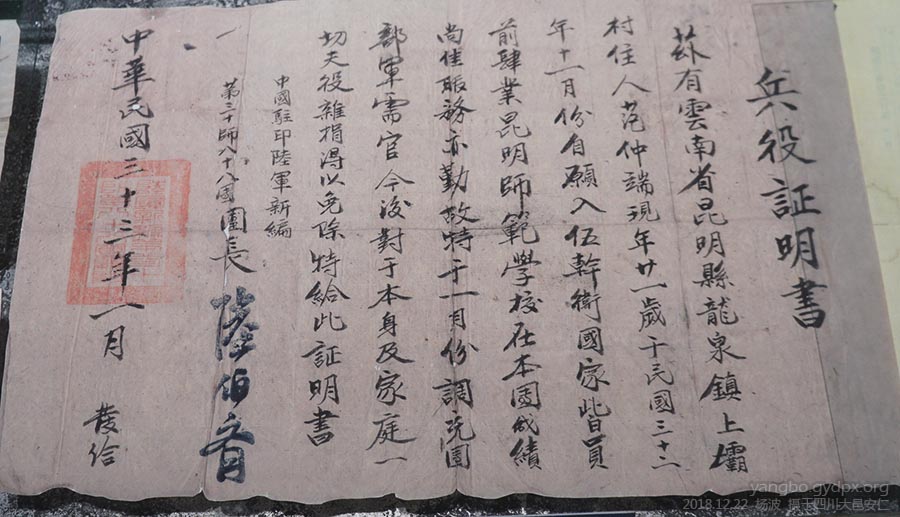 兵役証明書
茲有雲南省昆明縣龍泉鎮上壩
村住人范仲端現年廿一歲于民國三十二
年十一月份自願入伍幹衛國家此皆員
前肄業昆明師範學校在本團成績
尚佳服務亦勤故特于一月份調充團
部軍需官今後對于本身及家庭一
切夫役雜捐得以免除特給此証明書
中國駐印陸軍新編
第三十師八十八團團長 陸伯音
中華民國三十三年一月 發給
yangbo.gydpx.org
2018.12.22 杨波 摄于四川大邑安仁